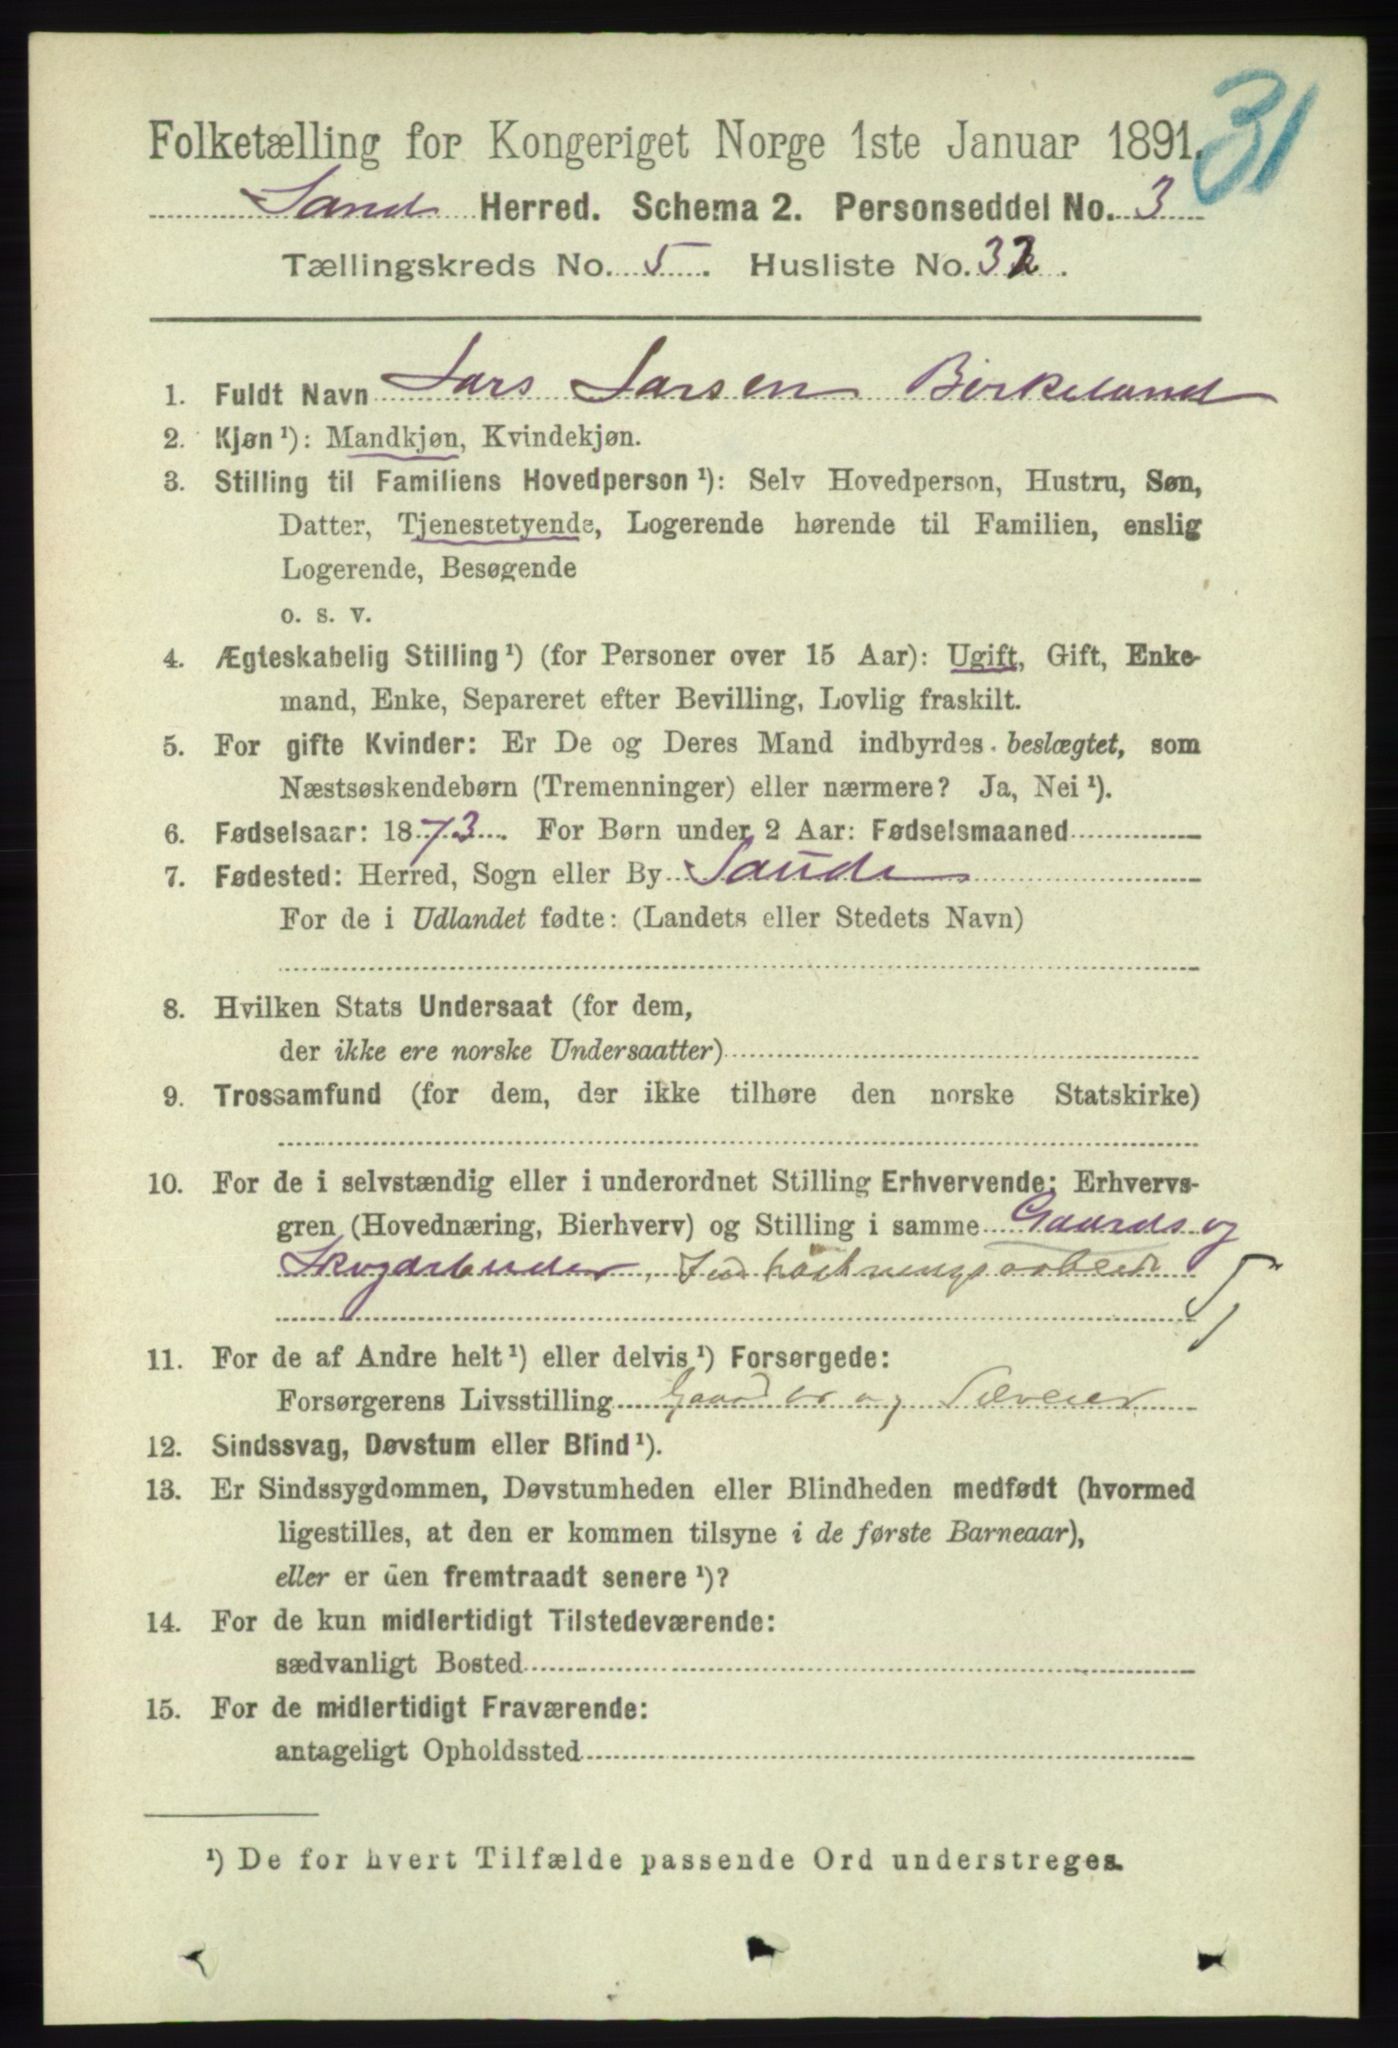 31
Folketælling for Kongeriget Norge 1ste Januar 1891.
Sand Herred. Schema 2. Personseddel No. 3
Tællingskreds No. 5. Husliste No. 32.
1. Fuldt Navn Lars Larsen Birkeland
2. Kjøn ¹): Mandkjøn, Kvindekjøn.
3. Stilling til Familiens Hovedperson ¹): Selv Hovedperson, Hustru, Søn,
Datter, Tjenestetyende, Logerende hørende til Familien, enslig
Logerende, Besøgende
o. s. v.
4. Ægteskabelig Stilling ¹) (for Personer over 15 Aar): Ugift, Gift, Enke-
mand, Enke, Separeret efter Bevilling, Lovlig fraskilt.
5. For gifte Kvinder: Er De og Deres Mand indbyrdes beslægtet, som
Næstsøskendebørn (Tremenninger) eller nærmere? Ja, Nei ¹).
6. Fødselsaar: 1873. For Børn under 2 Aar: Fødselsmaaned
7. Fødested: Herred, Sogn eller By Saude
For de i Udlandet fødte: (Landets eller Stedets Navn)
8. Hvilken Stats Undersaat (for dem,
der ikke ere norske Undersaatter)
9. Trossamfund (for dem, der ikke tilhøre den norske Statskirke)
10. For de i selvstændig eller i underordnet Stilling Erhvervende: Erhvervs-
gren (Hovednæring, Bierhverv) og Stilling i samme Gaards og
Skogarbeider,
11. For de af Andre helt ¹) eller delvis ¹) Forsørgede:
Forsørgerens Livsstilling Gaardbr og Selveier
12. Sindssvag, Døvstum eller Blind ¹).
13. Er Sindssygdommen, Døvstumheden eller Blindheden medfødt (hvormed
ligestilles, at den er kommen tilsyne i de første Barneaar),
eller er den fremtraadt senere ¹)?
14. For de kun midlertidigt Tilstedeværende:
sædvanligt Bosted
15. For de midlertidigt Fraværende:
antageligt Opholdssted
¹) De for hvert Tilfælde passende Ord understreges.